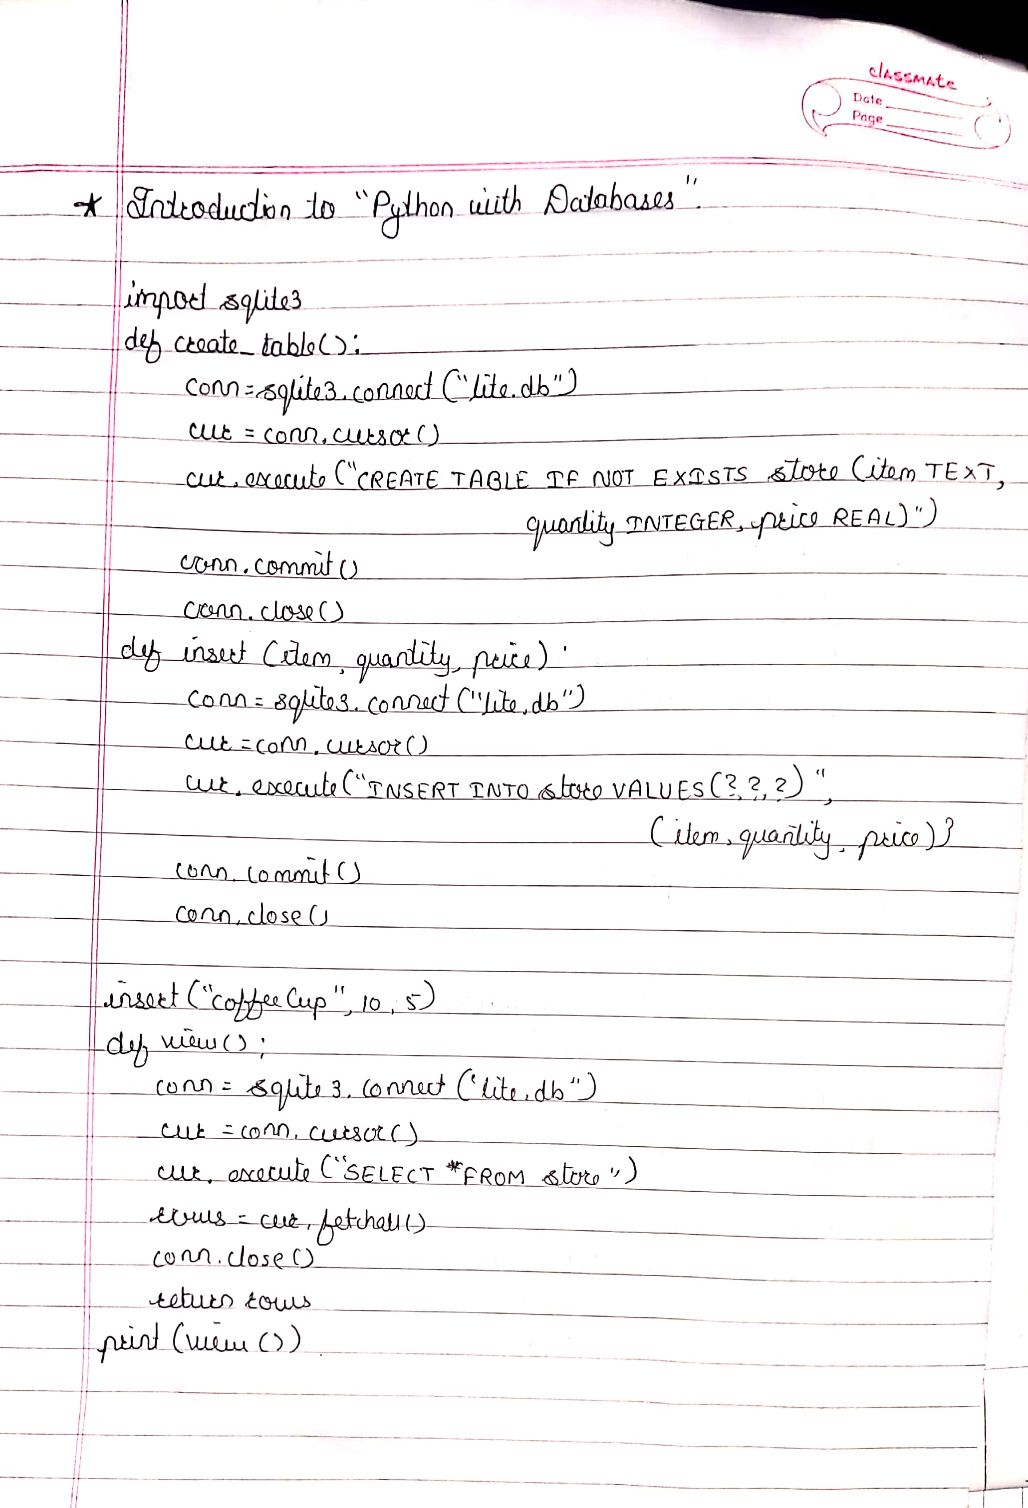 classmate
Date
Page
* Introduction to "Python with Databases".
import sqlite3
def create_table():
conn=sqlite3.connect("lite.db")
cur = conn.cursor()
cur.execute("CREATE TABLE IF NOT EXISTS store (item TEXT,
quantity INTEGER, price REAL)")
conn.commit()
conn.close()
def insert (item, quantity, price) :
conn= sqlite3.connect("lite.db")
cur =conn.cursor()
cur.execute("INSERT INTO store VALUES(?,?,?)",
(item, quantity, price))
conn.commit()
conn.close()
insert("coffee Cup", 10, 5)
def view():
conn= sqlite3.connect('lite.db")
cur =conn.cursor()
cur.execute("SELECT *FROM store")
rows = cur.fetchall()
conn.close()
return rows
print (view())